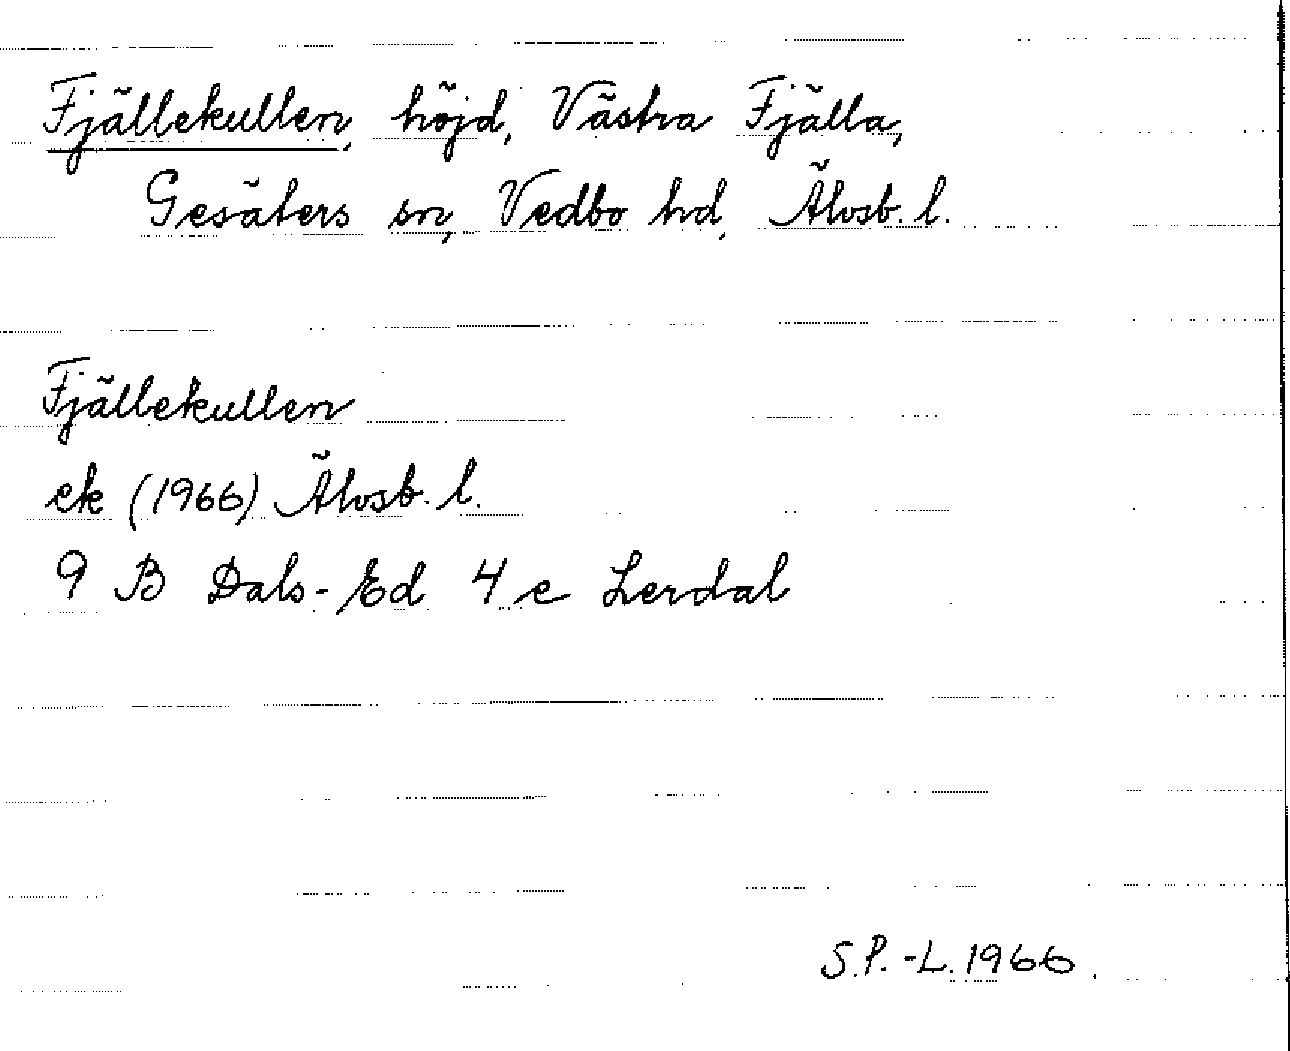 Fjällekullen, höjd, Västra Fjälla,
Gesäters sn, Vedbo hd, Älvsb. l.
Fjällekullen
ek (1966) Älvsb. l.
9 B Dals-Ed 4 e Lerdal
S.P.-L. 1966.